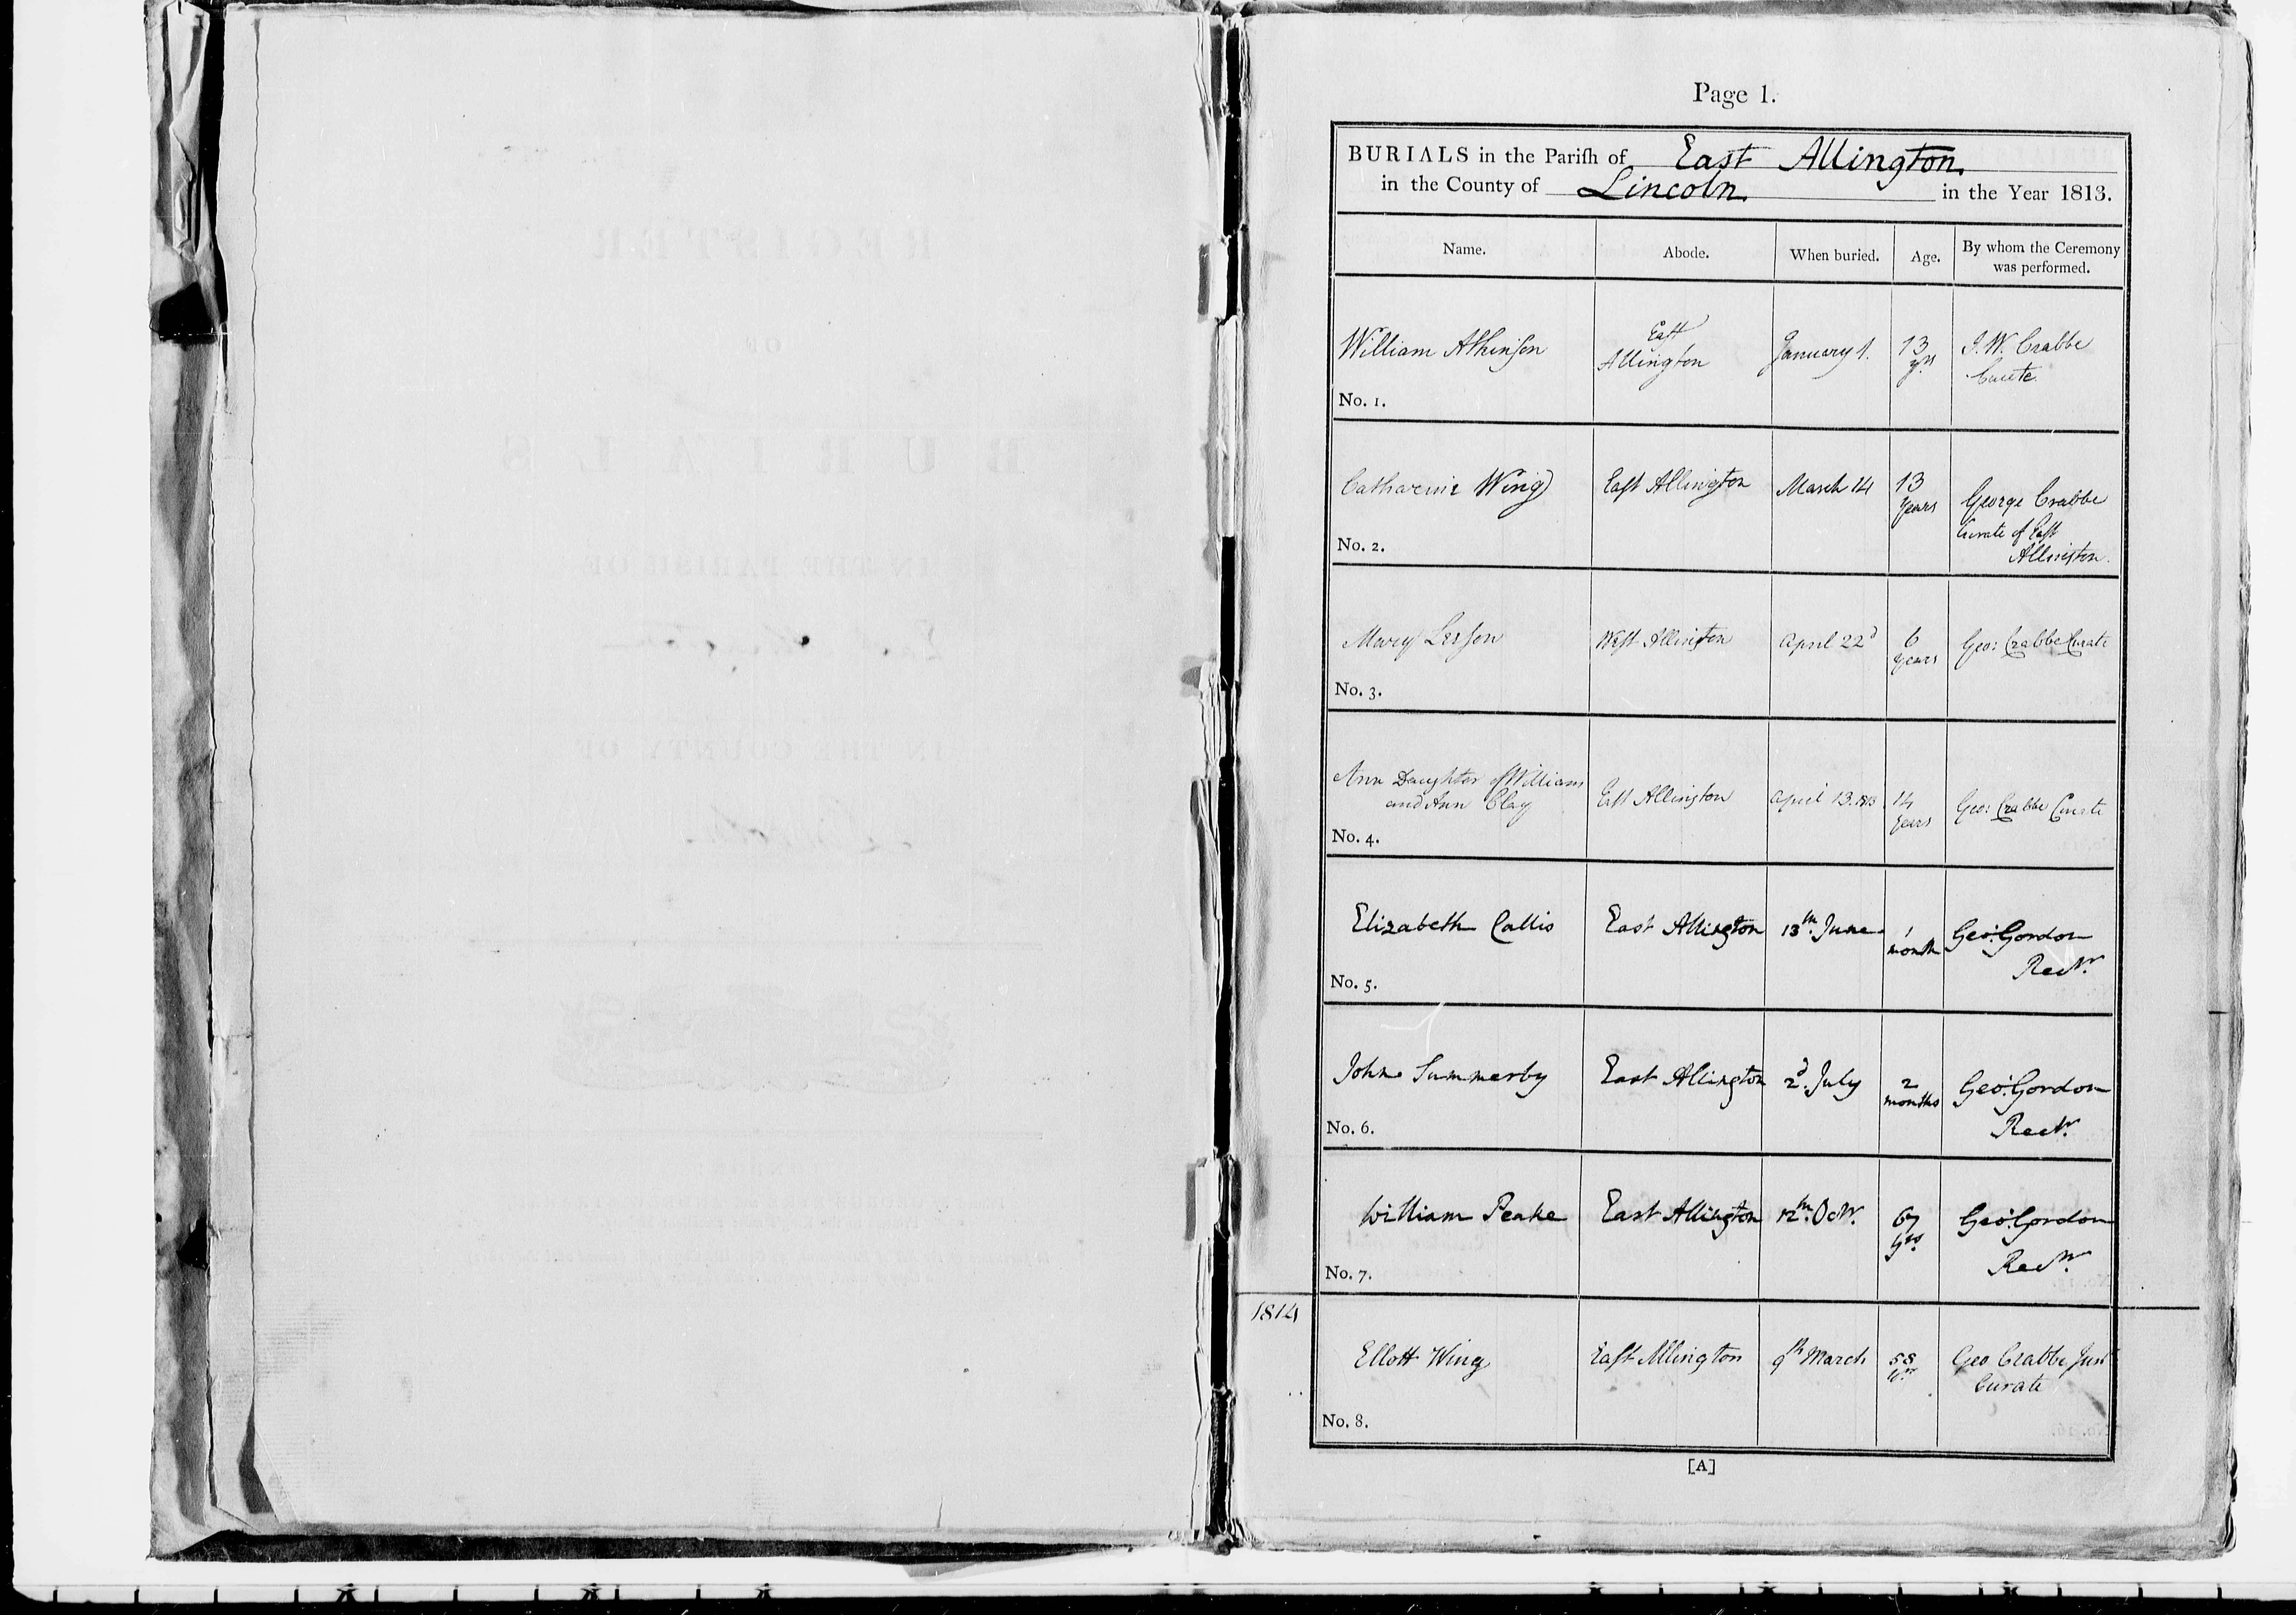 Page 1.
BURIALS in the Pariſh of East Allington
in the County of Lincoln in the Year 1813.
Name. Abode. When buried. Age. By whom the Ceremony was performed.
William Atkinſon
East
Allington
January 1.
13
yrs
J. W. Crabbe
No. 1.
Catharine Wing
Eaſt Allington
March 14
13
years
George Crabbe
Curate of Eaſt
Allington.
No. 2.
Mary
Weſt Allington
April 22d
6
years
Geo: Crabbe Curate
No. 3.
Ann Daughter of William
and Ann Clay
Eaſt Allington
April 13. 1813
14
years
Geo: Crabbe Curate
No. 4.
Elizabeth Callis
East Allington
13th June
1
month
Geo: Gordon
Rectr.
No. 5.
John Summerby
East Allington
2d. July
2
months
Geo: Gordon
Rectr.
No. 6.
William Peake
East Allington
12th. Octr.
67
yrs
Geo: Gordon
Rectr.
No. 7.
1814
Ellott Wing
Eaſt Allington
9th March
yrs
Geo Crabbe Junr
Curate
No. 8.
[A]